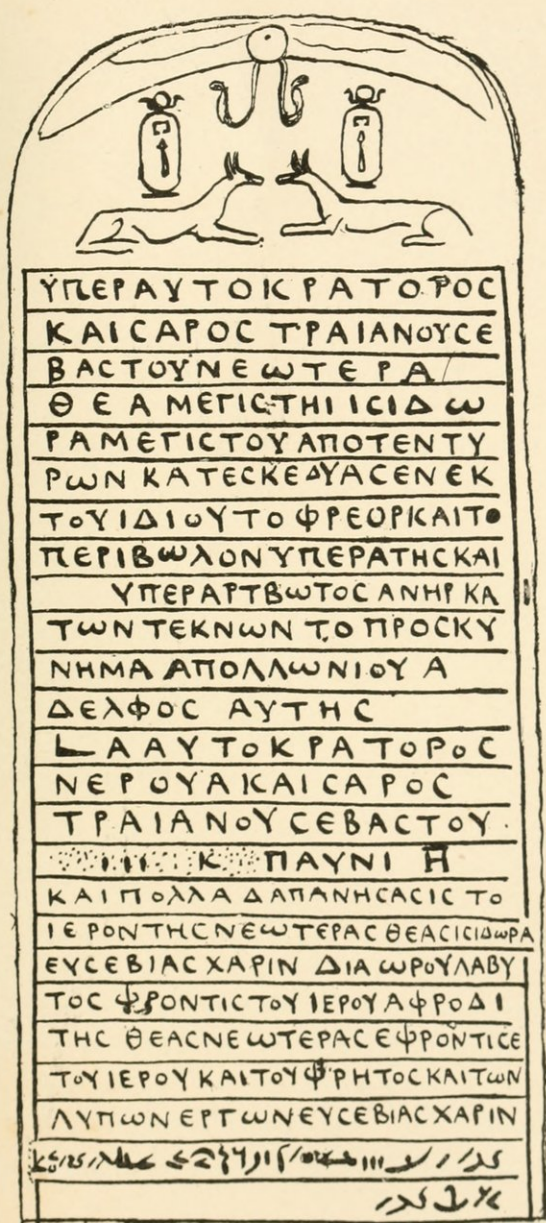 ΥΠΕΡΑΥΤΟΚΡΑΤΟΡΟC
ΚΑΙCΑΡΟC ΤΡΑΙΑΝΟΥCΕ
ΒΑCΤΟΥΝΕωΤΕΡΑ
ΘΕΑ ΜΕΓΙCΤΗΙ ΙCΙΔω
ΡΑΜΕΓΙCΤΟΥΑΠΟΤΕΝΤΥ
ΡωΝ ΚΑΤΕCΚΕΔΥΑCΕΝΕΚ
ΤΟΥΙΔΙΟΥΤΟΦΡΕΟΡΚΑΙΤΟ
ΠΕΡΙΒωΛΟΝΥΠΕΡΑΤΗCΚΑΙ
ΥΠΕΡΑΡΤΒωΤΟC ΑΝΗΡ ΚΑ
ΤωΝ ΤΕΚΝωΝ ΤΟ ΠΡΟCΚΥ
ΝΗΜΑ ΑΠΟΛΛωΝΙΟΥ Α
ΔΕΛΦΟC ΑΥΤΗC
L ΑΑΥΤΟΚΡΑΤΟΡΟC
ΝΕΡΟΥΑΚΑΙCΑΡΟC
ΤΡΑΙΑΝΟΥCΕΒΑCΤΟΥ
Κ ΠΑΥΝΙ Η
ΚΑΙ ΠΟΛΛΑ ΔΑΠΑΝΗCΑCΙC ΤΟ
ΙΕΡΟΝΤΗCΝΕωΤΕΡΑC ΘΕΑCΙCΙΔωΡΑ
ΕΥCΕΒΙΑC ΧΑΡΙΝ ΔΙΑ ωΡΟΥΛΑΒΥ
ΤΟC ΦΡΟΝΤΙCΤΟΥ ΙΕΡΟΥΑΦΡΟΔΙ
ΤΗC ΘΕΑCΝΕωΤΕΡΑCΕΦΡΟΝΤΙCΕ
ΤΟΥΙΕΡΟΥΚΑΙΤΟΥΦΡΗΤΟCΚΑΙΤωΝ
ΛΥΠωΝ ΕΡΓωΝΕΥCΕΒΙΑCΧΑΡΙΝ